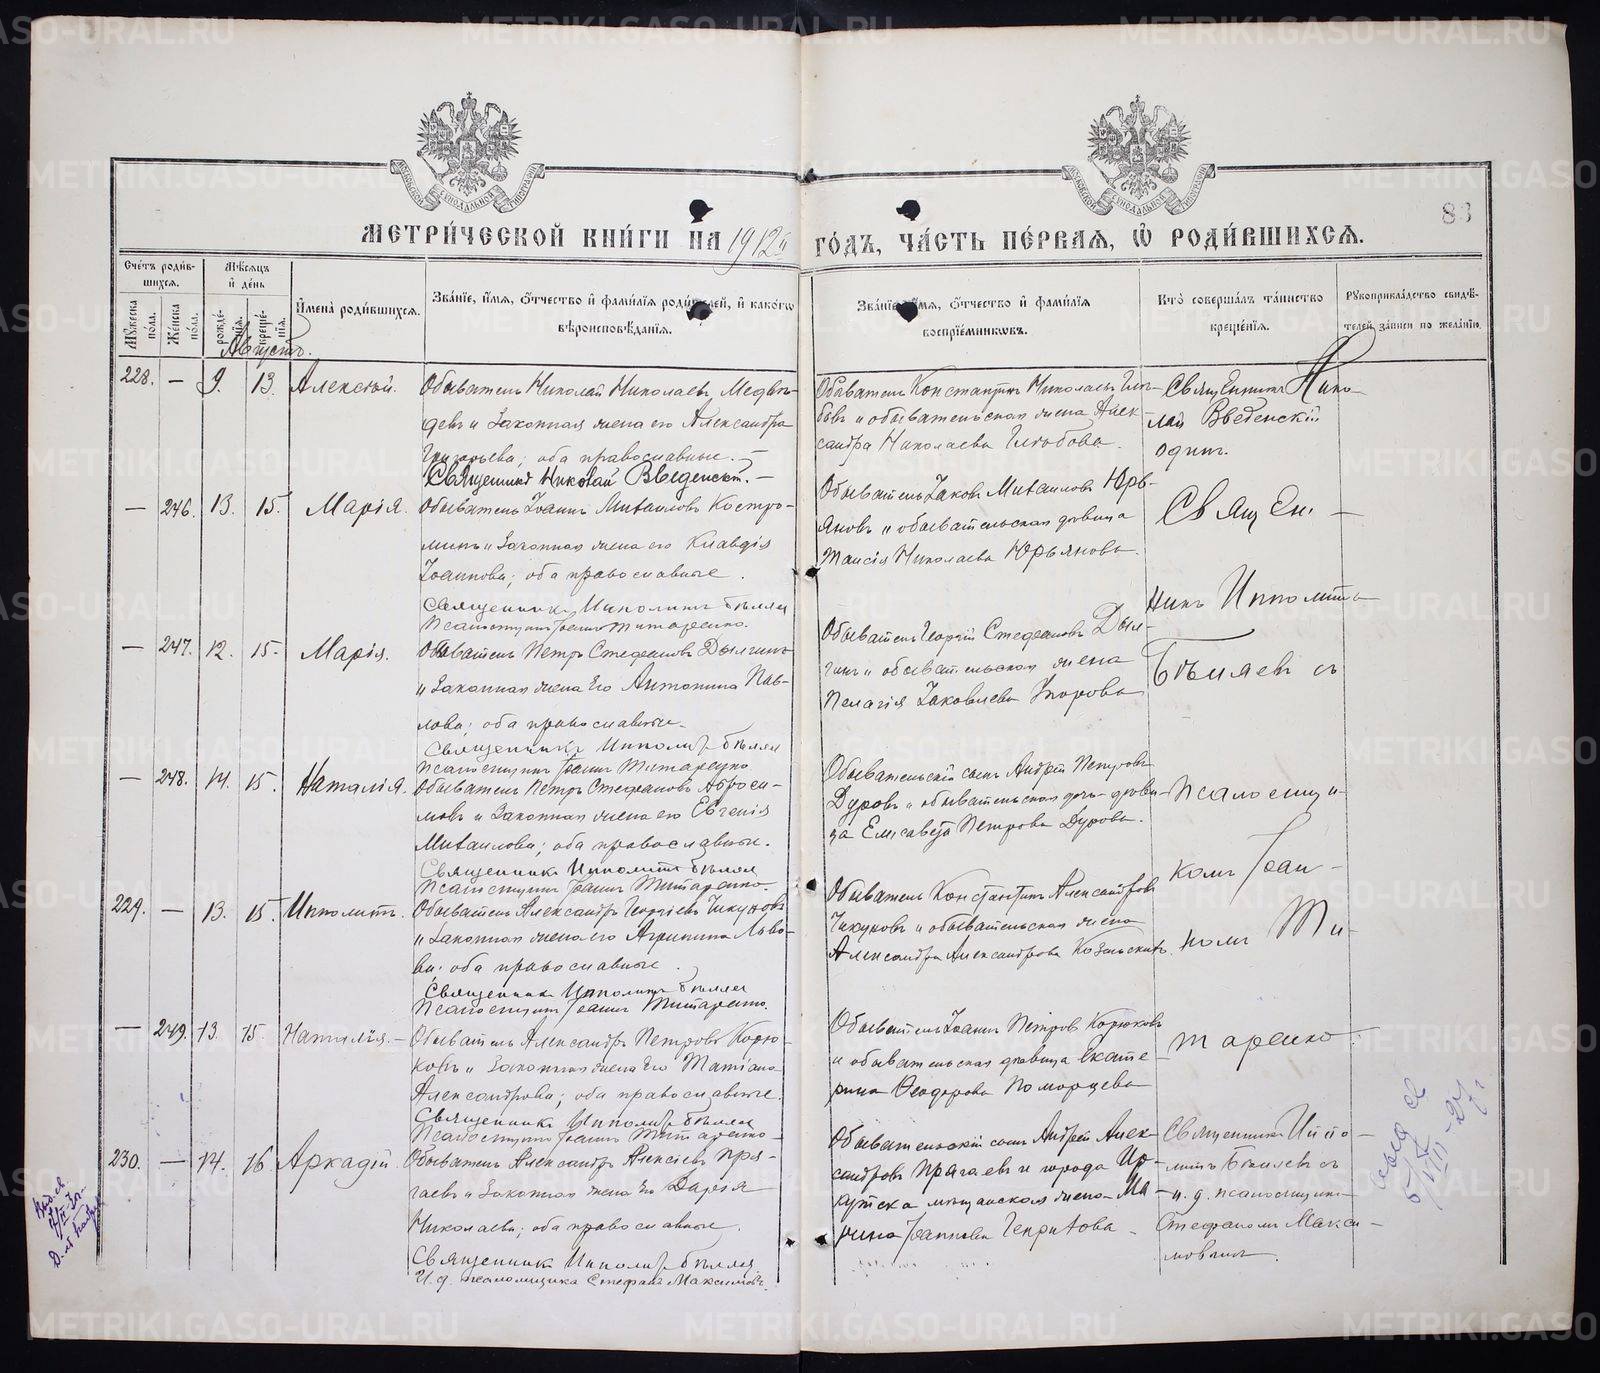 83
МЕТРИЧЕСКОЙ КНИГИ НА 1912 ГОДЪ, ЧАСТЬ ПЕРВАЯ, Ѡ РОДИВШИХСЯ.
Счетъ родившихся.
Мужеска пола.
Женска пола.
Мѣсяцъ и день
рожденія.
крещенія.
Имена родившихся.
Званіе, имя, отчество и фамилія родителей, и какого вѣроисповѣданія.
Званіе, имя, отчество и фамилія воспріемниковъ.
Кто совершалъ таинство крещенія.
Рукоприкладство свидѣтелей записи по желанію.
Августъ.
228. — 9. 13. Алексѣй.
Обыватель Николай Николаевъ Медвѣ-
девъ и законная жена его Александра
Григорьева; оба православные. —
Священникъ Николай Введенскій. —
Обыватель Константинъ Николаевъ Глю-
бовъ и обывательская жена Алек-
сандра Николаева Глюбова.
Священникъ Нико-
лай Введенскій
одинъ.
— 246. 13. 15. Марія.
Обыватель Іоаннъ Михаиловъ Костро-
минъ и законная жена его Клавдія
Іоаннова; оба православные.
Священникъ Ипполитъ Бѣляев
Псаломщикъ Іоаннъ Титаренко.
Обыватель Іаковъ Михаиловъ Юрь-
яновъ и обывательская дѣвица
Таисія Николаева Юрьянова.
Священ —
никъ Ипполитъ
Бѣляевъ съ
псаломщи-
комъ Іоан-
номъ Ти-
таренко.
— 247. 12. 15. Марія.
Обыватель Петръ Стефановъ Дылгинъ
и законная жена его Антонина Пав-
лова; оба православные.
Священникъ Ипполитъ Бѣляев
Псаломщикъ Іоаннъ Титаренко
Обыватель Георгій Стефановъ Дыл-
гинъ и обывательская жена
Пелагія Іаковлева
— 248. 14. 15. Наталія.
Обыватель Петръ Стефановъ Аброси-
мовъ и законная жена его Евгенія
Михаилова; оба православные.
Священникъ Ипполитъ Бѣляев
Псаломщикъ Іоаннъ Титаренко.
Обывательскій сынъ Андрей Петровъ
Дуровъ и обывательская дочь-дѣви-
ца Елисавета Петрова Дурова.
229. — 13. 15. Ипполитъ.
Обыватель Александръ Георгіевъ Чикуновъ
и законная жена его Агрипина Льво-
ва; оба православные.
Священникъ Ипполитъ Бѣляев
Псаломщикъ Іоаннъ Титаренко.
Обыватель Константинъ Александровъ
Чикуновъ и обывательская жена
Александра Александрова
— 249. 13. 15. Наталія. —
Обыватель Александръ Петровъ Корю-
ковъ и законная жена его Татіана
Александрова; оба православные.
Священникъ Ипполитъ Бѣляев
Псаломщикъ Іоаннъ Титаренко
Обыватель Іоаннъ Петровъ Корюковъ
и обывательская дѣвица Екате-
рина Ѳеодорова Поморцева
230. — 14. 16 Аркадій
Обыватель Александръ Алексіевъ Пря-
гаевъ и законная жена его Дарія
Николаева; оба православные.
Священникъ Ипполитъ Бѣляев
И. д. псаломщика Стефанъ Максимовъ.
Обывательскій сынъ Андрей Алек-
сандровъ Прягаевъ и города Ир-
кутска мѣщанская жена Ма-
рина Іоаннова
Священникъ Иппо-
литъ Бѣляевъ съ
и. д. псаломщика
Стефаномъ Макси-
мовымъ.